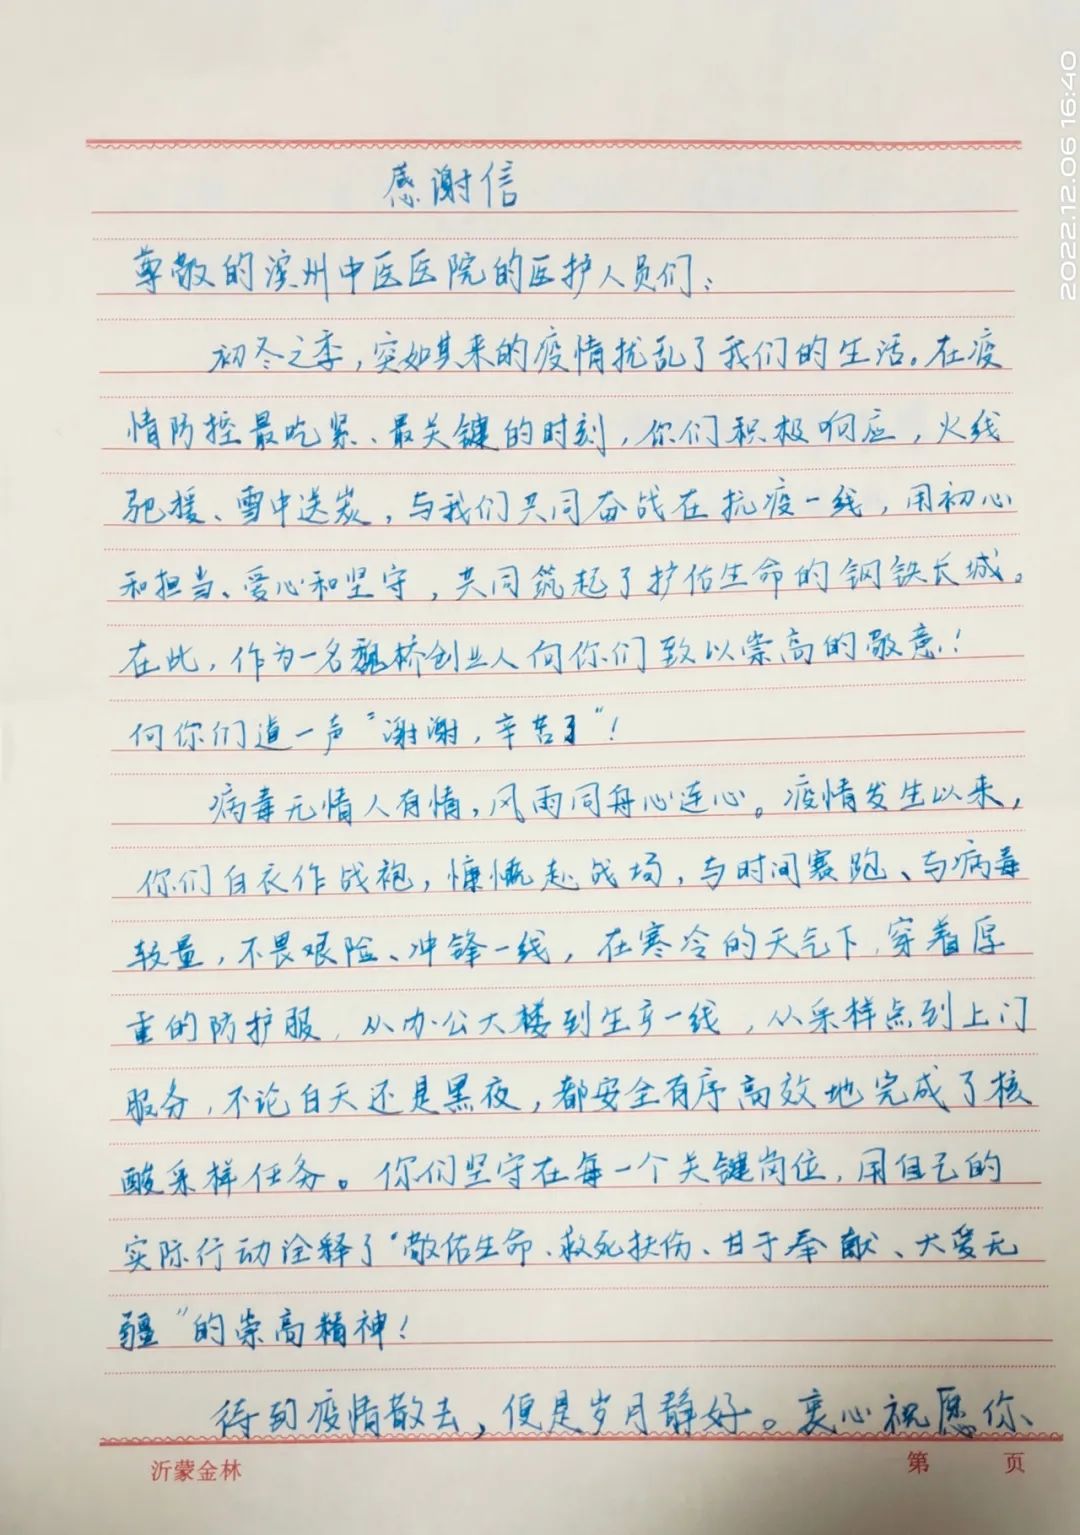 2022.12.06 16:40
感谢信
尊敬的滨州中医医院的医护人员们：
初冬之季，突如其来的疫情扰乱了我们的生活。在疫
情防控最吃紧、最关键的时刻，你们积极响应，火线
驰援、雪中送炭，与我们共同奋战在抗疫一线，用初心
和担当、爱心和坚守，共同筑起了护佑生命的钢铁长城。
在此，作为一名魏桥创业人向你们致以崇高的敬意！
向你们道一声“谢谢，辛苦了”！
病毒无情人有情，风雨同舟心连心。疫情发生以来，
你们白衣作战袍，慷慨赴战场，与时间赛跑、与病毒
较量，不畏艰险、冲锋一线，在寒冷的天气下，穿着厚
重的防护服，从办公大楼到生产一线，从采样点到上门
服务，不论白天还是黑夜，都安全有序高效地完成了核
酸采样任务。你们坚守在每一个关键岗位，用自己的
实际行动诠释了“敬佑生命、救死扶伤、甘于奉献、大爱无
疆”的崇高精神！
待到疫情散去，便是岁月静好。衷心祝愿你、
沂蒙金林
第 页